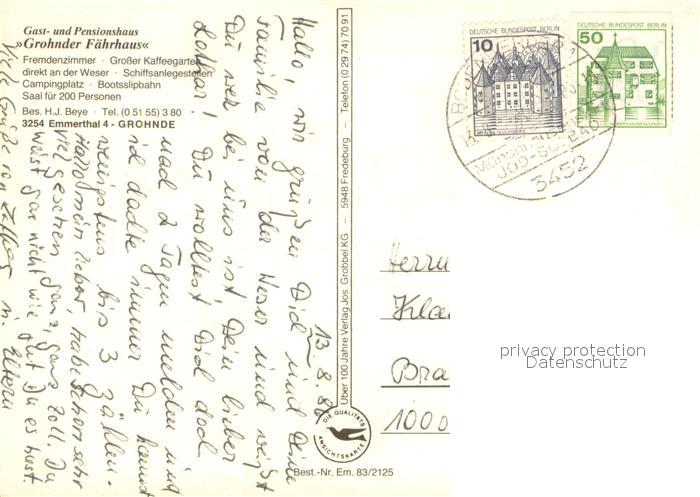 Gast- und Pensionshaus
»Grohnder Fährhaus«
Fremdenzimmer · Großer Kaffeegarten
direkt an der Weser · Schiffsanlegestellen
Campingplatz · Bootsslipbahn
Saal für 200 Personen
Bes. H.J. Beye · Tel. (0 51 55) 3 80
3254 Emmerthal 4 - GROHNDE
13.8.86
Hallo, wir grüßen Dich und Deine
Familie von der Weser und weißt
Du wer bei uns ist? Dein lieber
Lothar! Du wolltest Dich doch
nach 2 Tagen melden und
ich dachte immer Du kannst
wenigstens bis 3 zählen.
Harz mein lieber, habe schon sehr
viel gesehen ganz, ganz toll. Du
weist gar nicht wie gut Du es hast.
Viele Grüße von Lothar u. Eltern
Über 100 Jahre Verlag Jos. Grobbel KG — 5948 Fredeburg — Telefon (0 29 74) 70 91
DIE QUALITÄTS
ANSICHTSKARTE
Best.-Nr. Em. 83/2125
DEUTSCHE BUNDESPOST BERLIN
10
DEUTSCHE BUNDESPOST BERLIN
50
JOD-SOLBAD
3452
Herrn
Kla
Bra
1000
privacy protection
Datenschutz